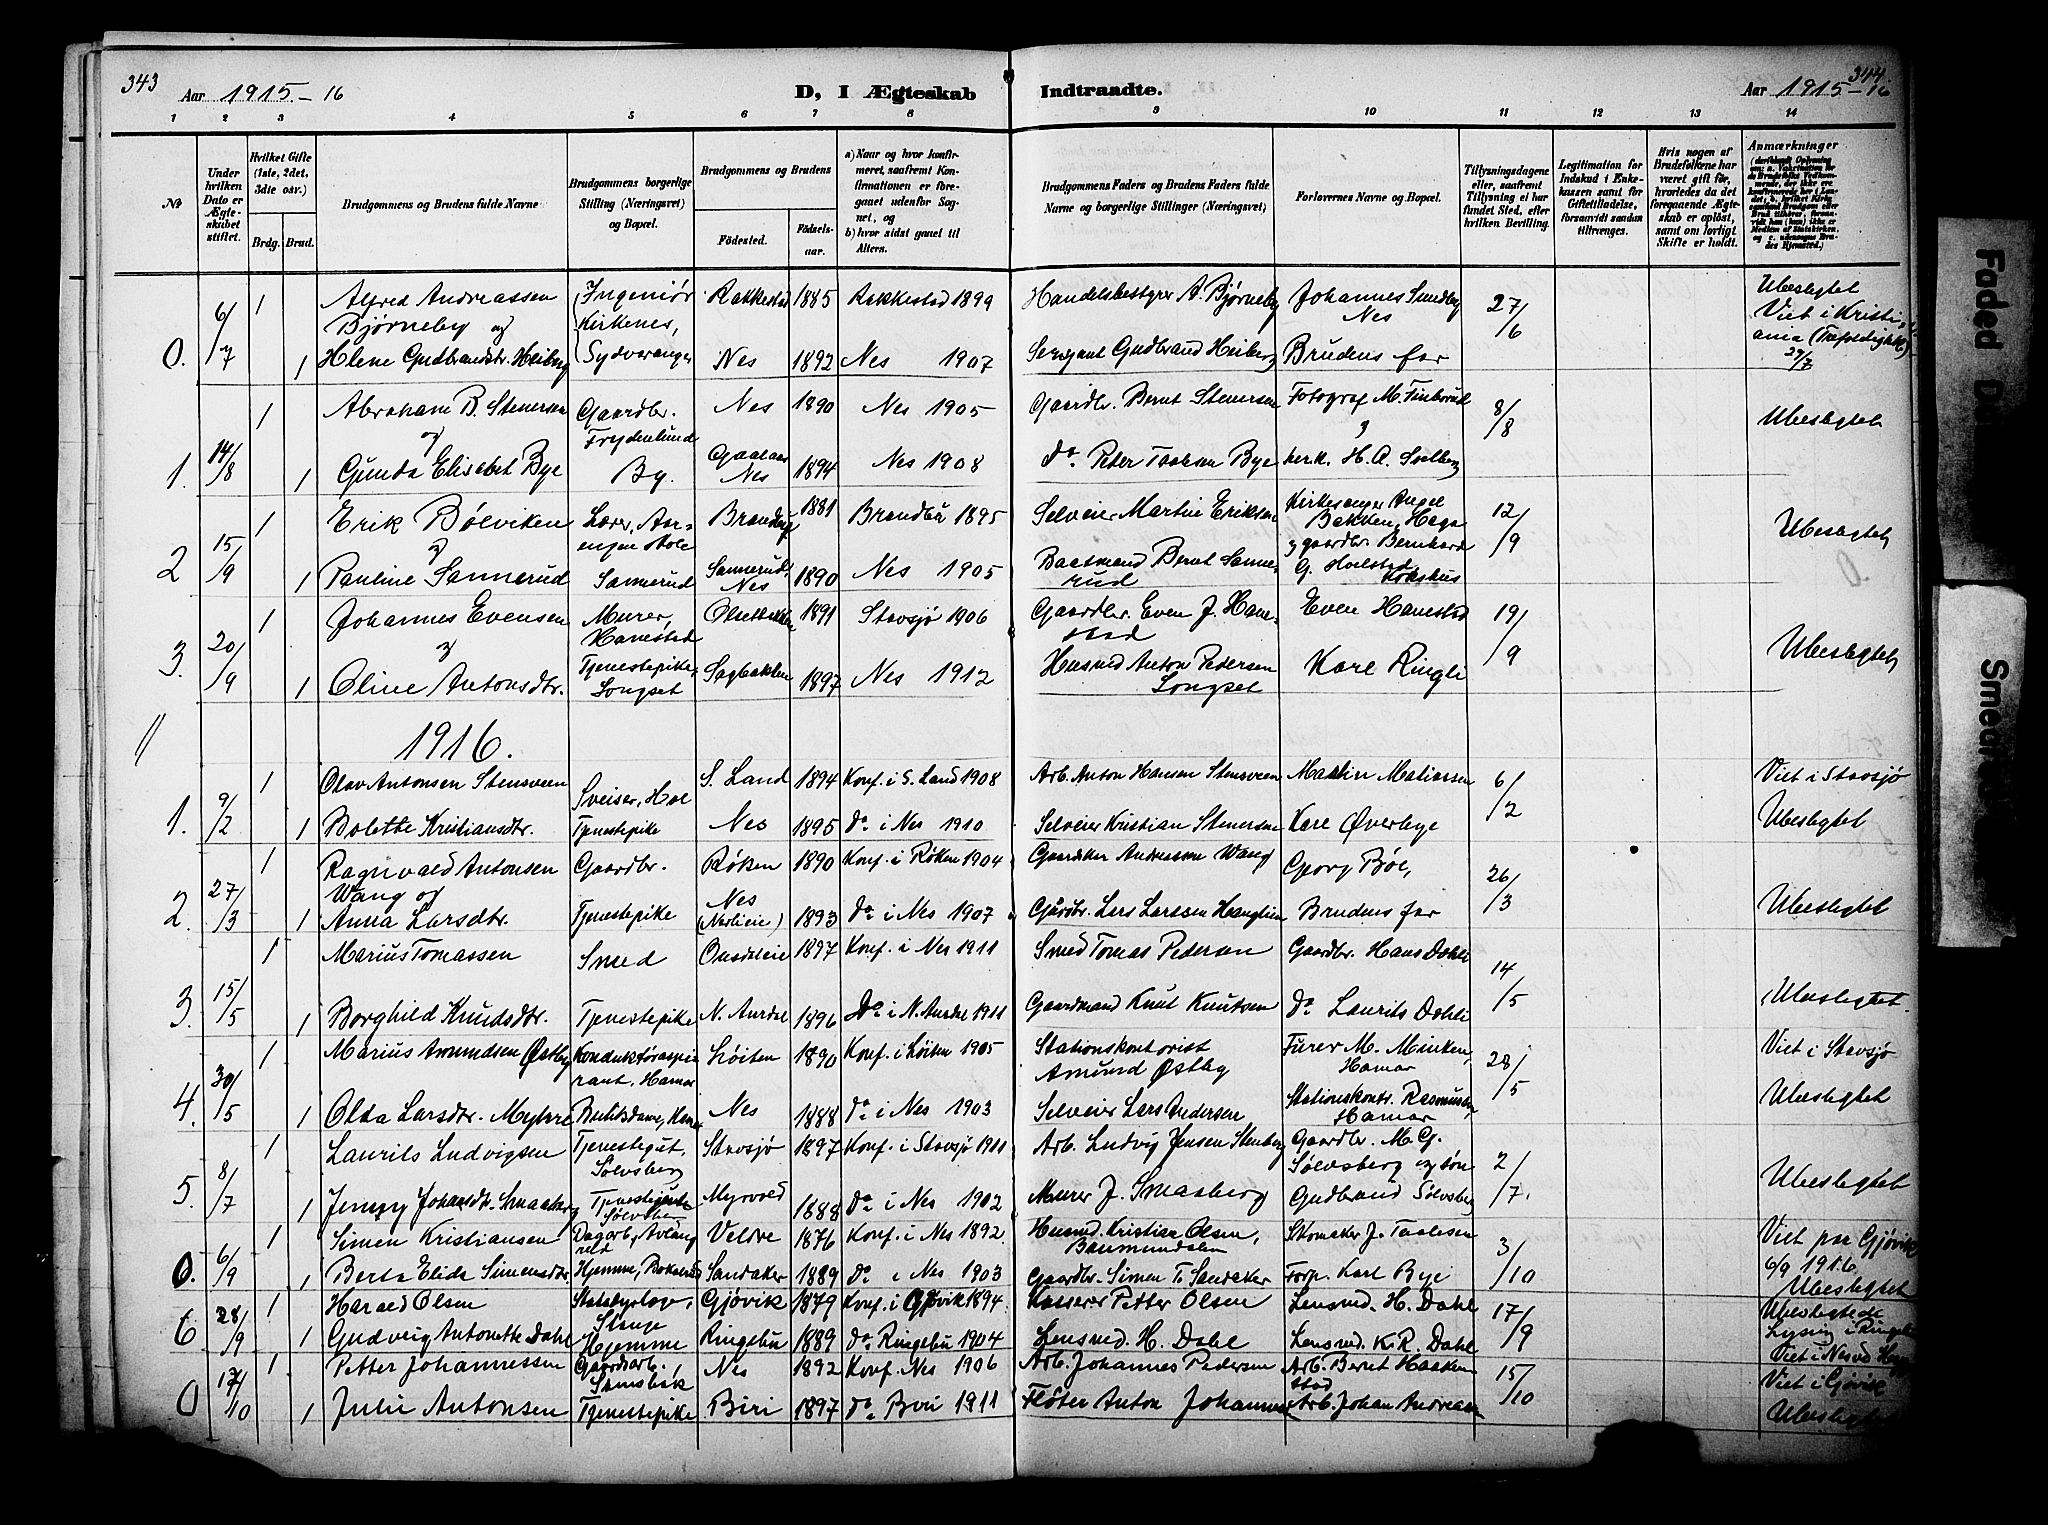 343
Aar 1915.-16
D, I Ægteskab
Indtraadte.
Aar 1915-16
344
1 2 3 4 5 6 7 8 9 10 11 12 13 14
No
Under hvilken Dato er Ægteskabet stiftet.
Hvilket Gifte (1ste, 2det, 3die osv.)
Brdg. Brud.
Brudgommens og Brudens fulde Navne
Brudgommens borgerlige Stilling (Næringsvei) og Bopæl.
Brudgommens og Brudens
Fødested. Fødselsaar.
a) Naar og hvor konfirmeret, saafremt Konfirmationen er foregaaet udenfor Sognet, og
b) hvor sidst gaaet til Alters.
Brudgommens Faders og Brudens Faders fulde Navne og borgerlige Stillinger (Næringsvei)
Forlovernes Navne og Bopæl.
Tillysningsdagene eller, saafremt Tillysning ei har fundet Sted, efter hvilken Bevilling.
Legitimation for Indskud i Enkekassen samt for Giftetilladelse, forsaavidt saadan tiltrænges.
Hvis nogen af Brudefolkene har været gift før, hvorledes da det foregaaende Ægteskab er opløst, samt om lovligt Skifte er holdt.
Anmærkninger
0. 6/7 1 Alfred Andreassen Bjørneby og Ingeniør Kirkenes, Sydvaranger Rakkestad 1885 Rakkestad 1899 Handelsbestyrer A. Bjørneby Johannes Sundby Nes 27/6 Ubeslegtet Viet i Kristiania 27/7
1 Helene Gudbrandsdtr. Heiberg Nes 1892 Nes 1907 Sersjant Gudbrand Heiberg Brudens far
1. 14/8 1 Abraham B. Stenersen og Gaardbr. Frydenlund Nes 1890 Nes 1905 Gaardbr. Bernt Stenersen Fotograf M. Finbsrud 8/8 Ubeslegtet
1 Gunda Elisabet Bye By. Gaalaas Nes 1894 Nes 1908 Do Peter Bye H. A. Solberg
2 15/9 1 Erik Bølviken og Lærer, Brandbu 1881 Brandbu 1895 Selveier Martin Eriksen Kirkesanger Bakken, Haga 12/9 Ubeslegtet
1 Pauline Sannerud Sannerud Sannerud, Nes 1890 Nes 1905 Baatsmand Bernt Sannerud og gaardbr. Bernhard G.
3. 20/9 1 Johannes Evensen og Murer, Hanestad 1891 Stavsjø 1906 Gaardbr. Even J. Hanestad Even Hanestad 19/9 Ubeslegtet
1 Oline Antonsdtr. Tjenestepike, Longset Sagbakken 1897 Nes 1912 Husmd Anton Pedersen Longset Kare Ringli
1916.
1. 9/2 1 Olav Antonsen Stensveen Sveiser, Hol S. Land 1894 Konf. i S. Land 1908 Arb. Anton Hansen Stensveen Martin Matiassen 6/2 Viet i Stavsjø
1 Bolette Kristiansdtr. Tjenestepike Nes 1895 Do i Nes 1910 Selveier Kristian Stenersen Kare Øverbye Ubeslegtet
2. 27/3 1 Ragnvald Antonsen Wang og Gaardbr. Røken 1890 Konf. i Røken 1904 Gaardbr Andreassen Wang Georg Bøe, 26/3 Ubeslegtet
1 Anna Larsdtr. Tjenestepike Nes (Nærlieie) 1893 Do i Nes 1907 Gårdbr. Lars Larssen Brudens far
3. 15/5 1 Marius Tomassen Smed 1897 Konf. i Nes 1911 Smed Tomas Pedersen Gaardbr. Hans Dahli 14/5 Ubeslegtet
1 Borghild Knudsdtr. Tjenestepike N. Aurdal 1896 Do i N. Aurdal 1911 Gaardmand Knut Knutsen Do Laurits Dahli
4. 30/5 1 Marius Amundsen Østby Konduktøraspirant, Hamar Løiten 1890 Konf. i Løiten 1905 Stationskontorist Amund Østby Fører M. Minken, Hamar 28/5 Viet i Stavsjø
1 Olga Larsdtr. Myhre Butikdame, Hamar Nes 1888 Do i Nes 1903 Selveier Lars Andersen Stationskontr. Rasmussen Hamar Ubeslegtet
5. 8/7 1 Laurits Ludvigsen Tjenestegut, Sølvsberg Stavsjø 1897 Konf. i Stavsjø 1911 Arb. Ludvig Jensen Stenberg Gaardbr. M. G. Sølvsberg og søn 2/7. Ubeslegtet
1 Jenny Johansdtr. Smaaberg Tjenestejente Sølvsberg Myrvold 1888 Do i Nes 1902 Murer J. Smaaberg Gudbrand Sølvsberg
0. 6/9 1 Simen Kristiansen Dagarb, Veldre 1876 Konf. i Nes 1892 Husmd. Kristian Olsen, Skomaker J. Taalesen 3/10 Viet paa Gjøvik 6/9 1916
1 Berta Elida Simensdtr. Hjemme, Sandaker 1889 Do i Nes 1903 Gaardbr. Simen T. Sandaker Forp. Karl Bye Ubeslegtet
6 28/9 1 Harald Olsen Gjøvik 1879 Konf. i Gjøvik 1894. Kasserer Petter Olsen Lensmd. H. Dahl 17/9 Ubeslegtede
1 Gudveig Antonette Dahl Hjemme Ringebu 1889 Do Ringebu 1904 Lensmd. H. Dahl Lensmd. K. R. Dahl Viet i Nes
0 17/10 1 Petter Johannessen Gaardarb., Nes 1892 Konf. Nes 1906 Arb. Johannes Pedersen Arb. Bernt Haakenstad 15/10 Viet i Gjøvik
1 Julie Antonsen Tjenestepike Biri 1897 Do Biri 1911 Fløter Anton Johannessen Arb. Johan Andreassen Ubeslegtet
Faded